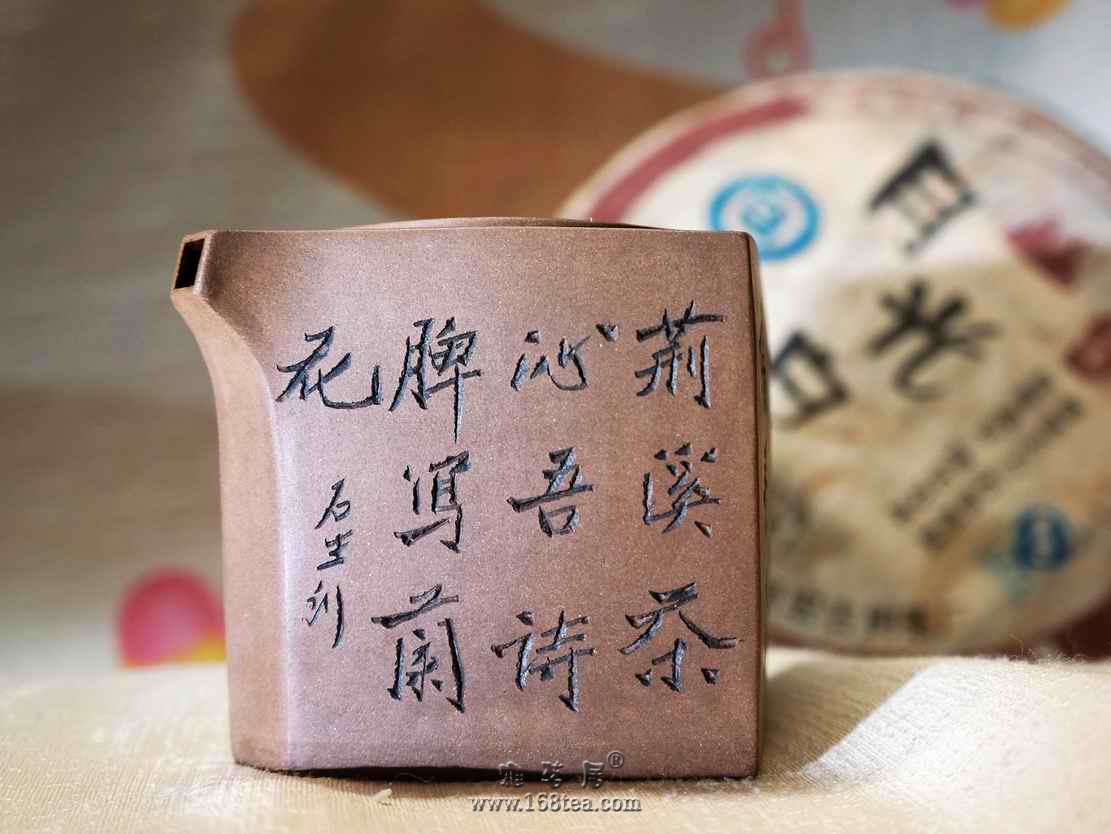 荆溪茶
沁吾诗
脾写蘭
花
石生刻
月光白
雅茗居®
www.168tea.com